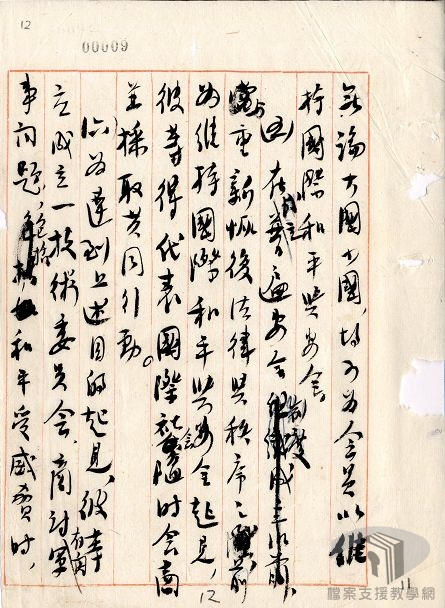 12
00009
無論大國小國，均可為會員，以維
持國際和平與安全。
四 在成立普遍安全制度
與重新恢復法律與秩序之前
為維持國際和平與安全起見，
彼等得代表國際社會隨時會商
並採取共同行動。
六 為達到上述目的起見，彼等
立成立一技術委員會，商討有關軍
事問題，包括和平受威脅時，
12
11
檔案支援教學網